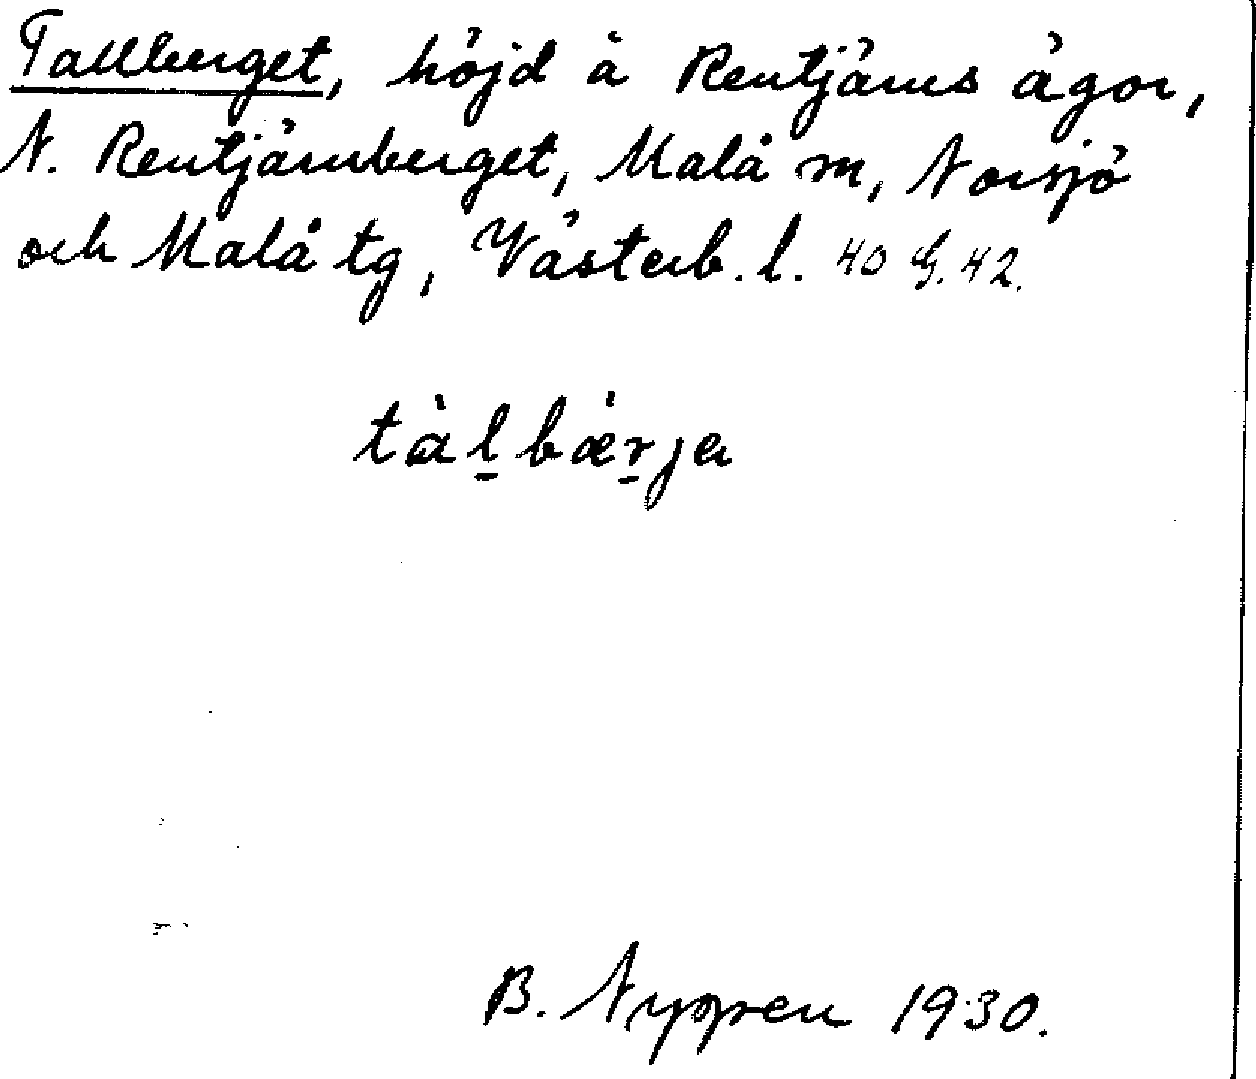 Tallberget, höjd å Rentjärns ägor,
N. Rentjärnberget, Malå sn, Norsjö
och Malå tg, Västerb. l. 40 G. 42.
tàl̠bǽr̠ja
B. Nyppen 1930.